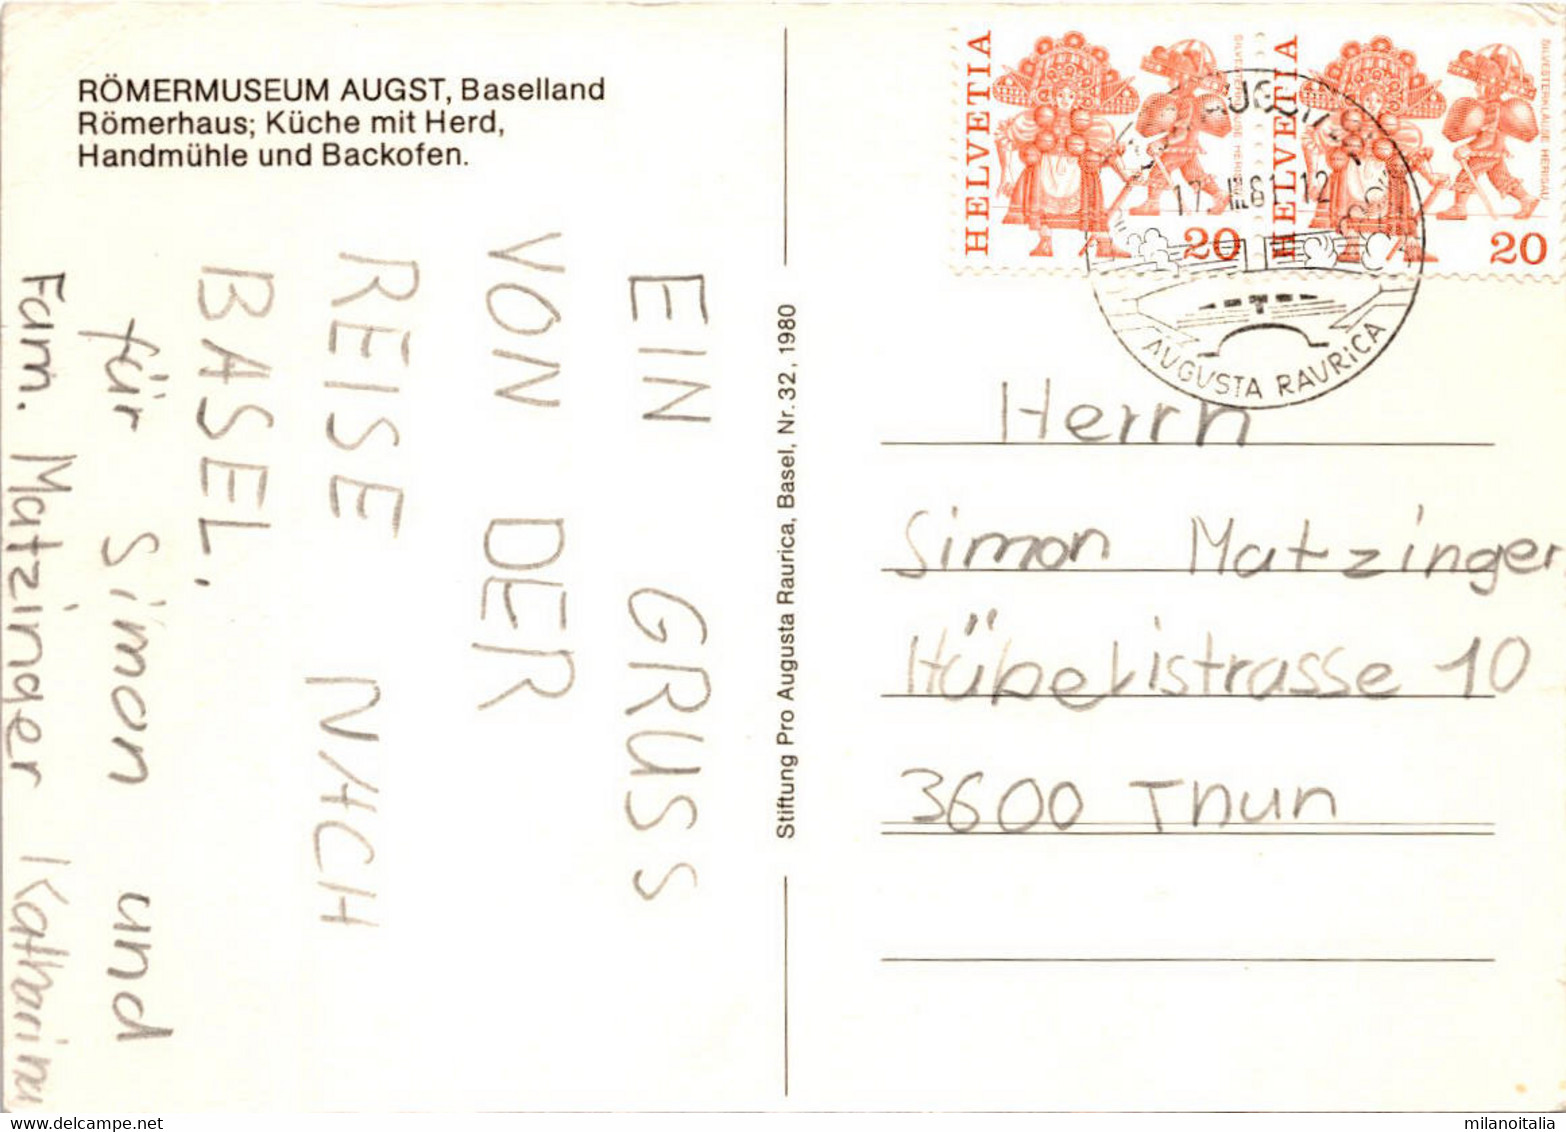 RÖMERMUSEUM AUGST, Baselland
Römerhaus; Küche mit Herd,
Handmühle und Backofen.
EIN GRUSS
VON DER
REISE NACH
BASEL.
für Simon und
Fam. Matzinger Katharina
Stiftung Pro Augusta Raurica, Basel, Nr. 32, 1980
HELVETIA
20
HELVETIA
SILVESTERKLÄUSE HERISAU
20
17. III 81 12
AUGUSTA RAURICA
Herrn
Simon Matzinger
Hübelistrasse 10
3600 Thun
milanoitalia